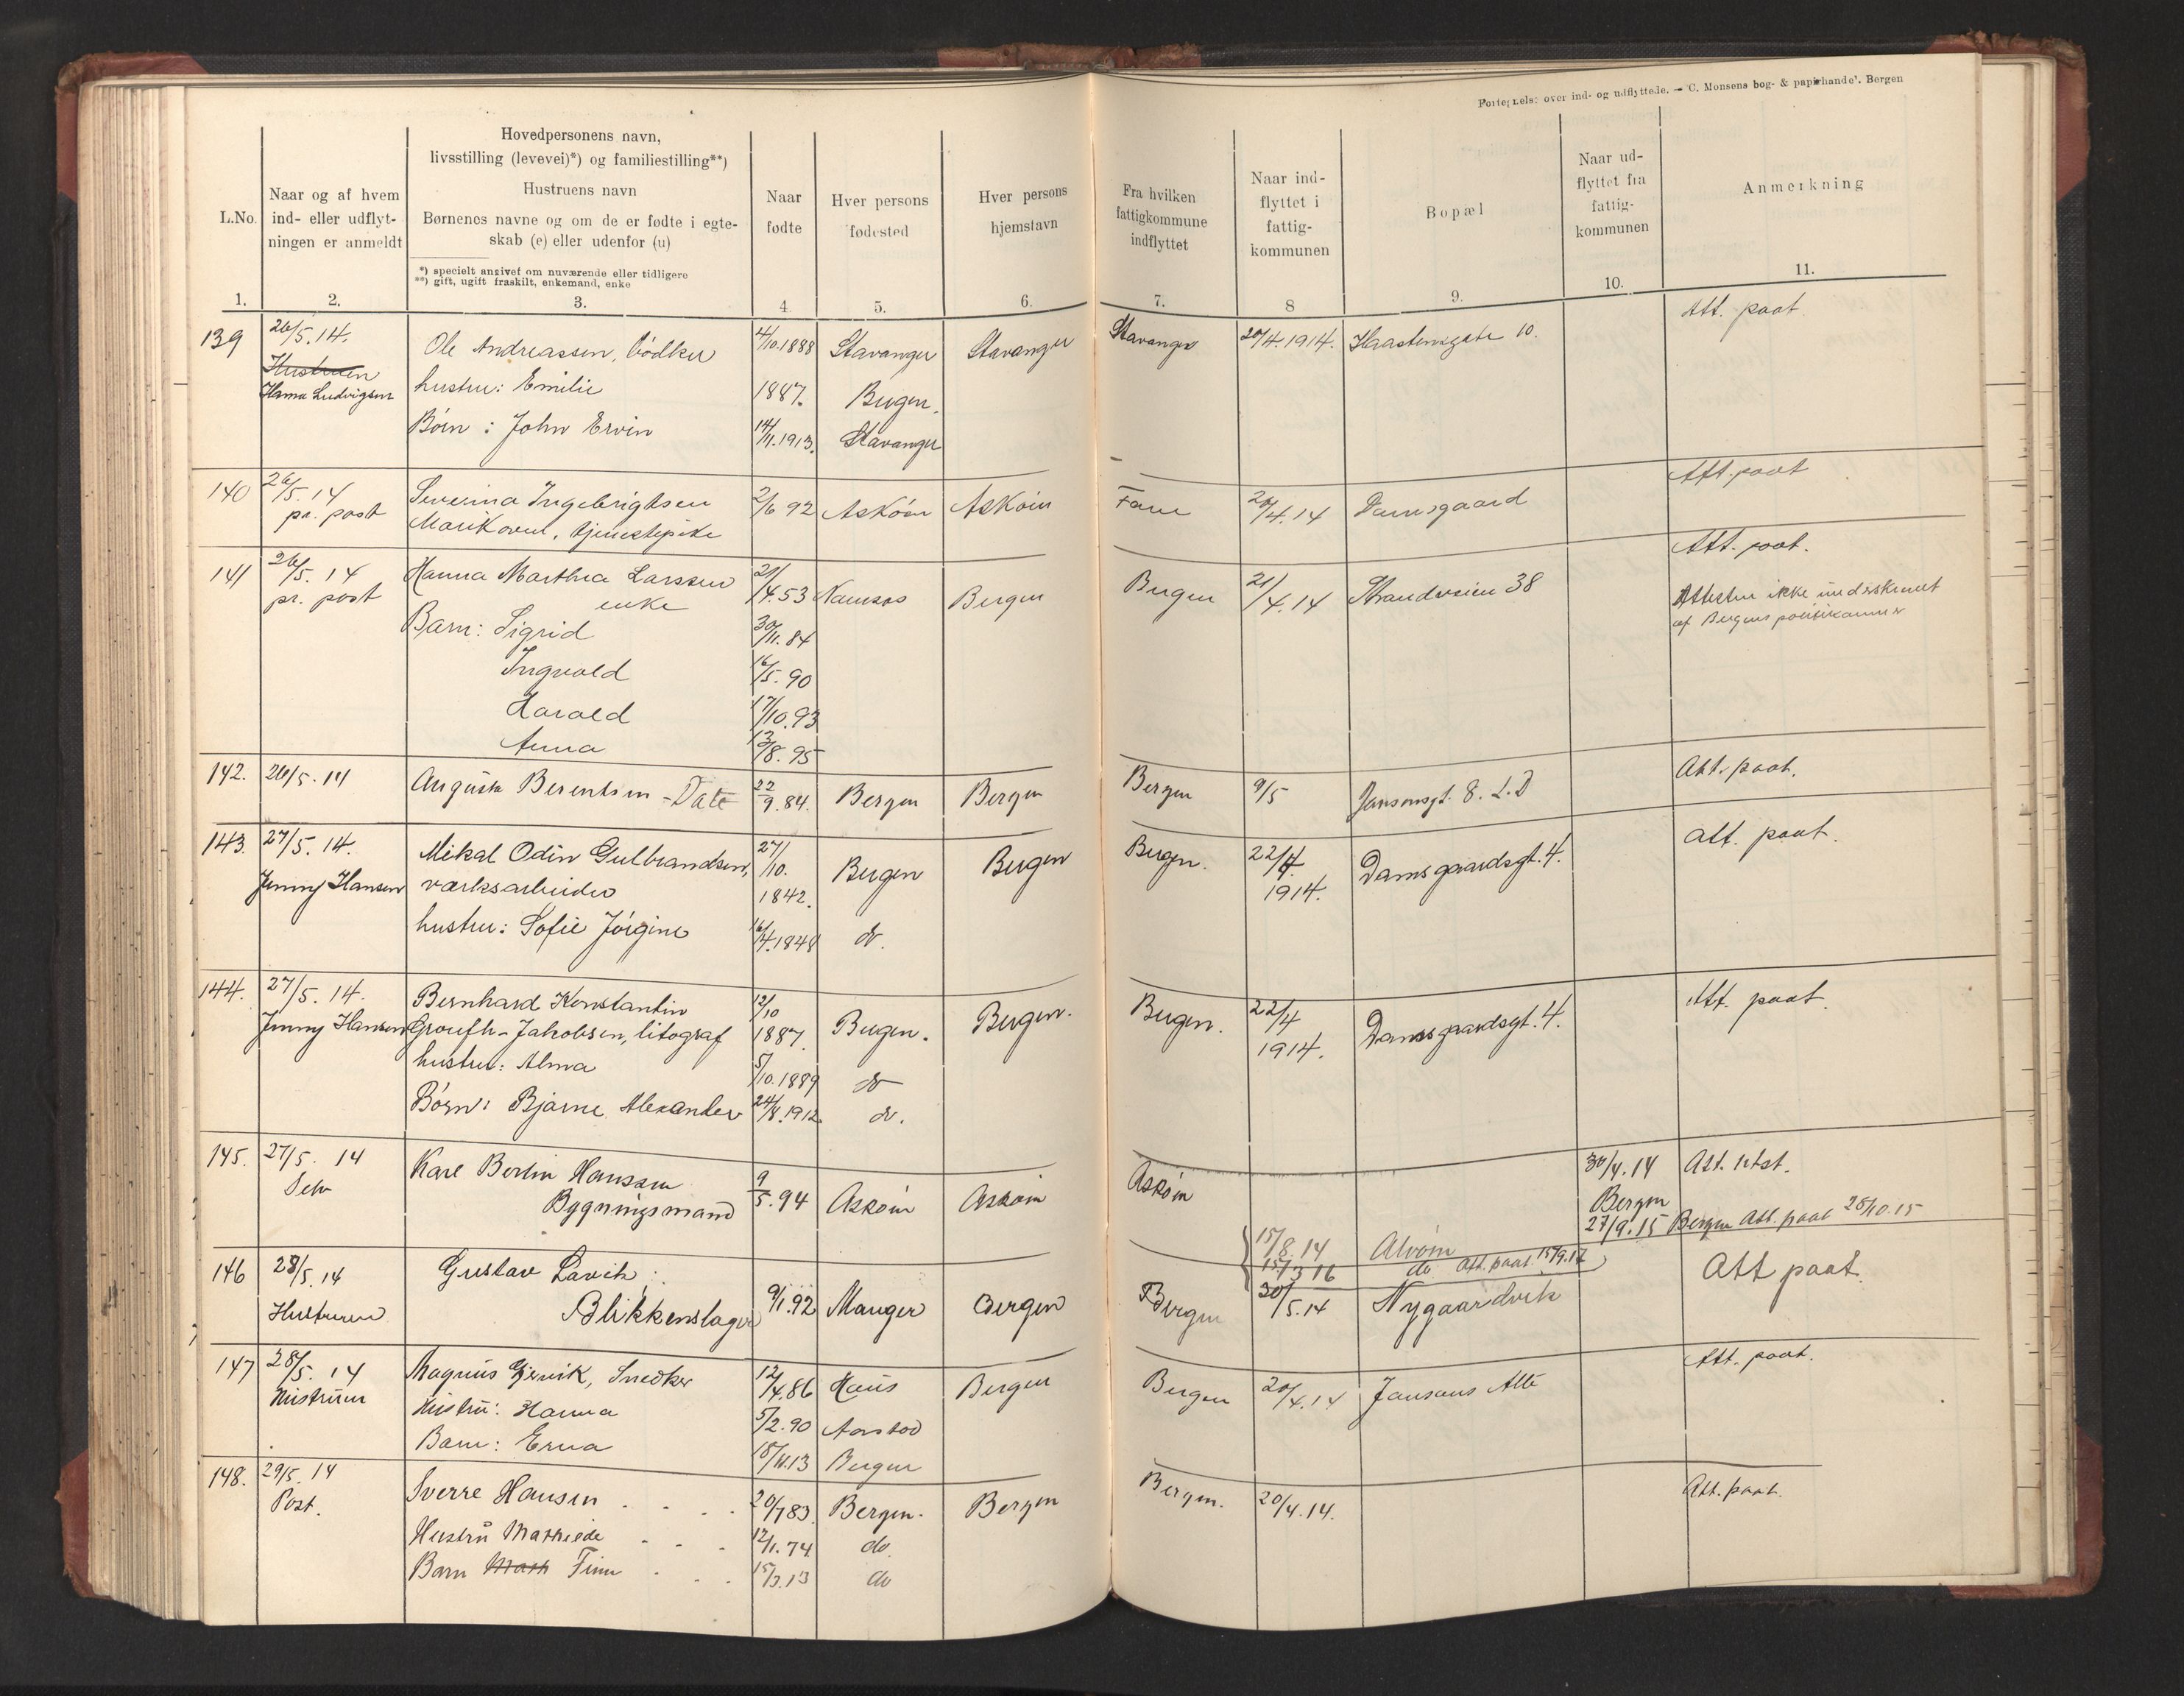 Fortegnelse over ind- og udflyttede. — C. Monsens bog- & papirhandel. Bergen
L.No.
Naar og af hvem
ind- eller udflyt-
ningen er anmeldt
Hovedpersonens navn,
livsstilling (levevei)*) og familiestilling**)
Hustruens navn
Børnenes navne og om de er fødte i egte-
skab (e) eller udenfor (u)
*) specielt angivet om nuværende eller tidligere
**) gift, ugift fraskilt, enkemand, enke
Naar
fødte
Hver persons
fødested
Hver persons
hjemstavn
Fra hvilken
fattigkommune
indflyttet
Naar ind-
flyttet i
fattig-
kommunen
Bopæl
Naar ud-
flyttet fra
fattig-
kommunen
Anmerkning
1. 2. 3. 4 5. 6. 7. 8 9. 10. 11.
139 26/5.14. Ole Andreassen, bødker 4/10.1888 Stavanger Stavanger Stavanger 20/4.1914. Haasteinsgate 10. Att. paat
Hustruen
Hanna Ludvigsen hustru: Emilie 1887. Bergen.
Børn: John Ervin 14/11.1913. Stavanger
140 26/5.14 Severina Ingebrigtsen 2/6 92 Askøen Askøen Fane 20/4.14 Damsgaard Att. paat
pr. post Marikoven, tjenestepike
141 26/5.14 Hanna Marthea Larssen 21/4.53 Namsos Bergen Bergen 21/4.14 Strandveien 38 Att. paat.
pr. post enke Attesten ikke underskrevet
af Bergens politikammer
Barn: Sigrid 30/11.84
Ingvald 16/5.90
Harald 17/10.93
Anna 13/8.95
142. 26/5.14 Augusta Berentsen - Datt 22/9.84. Bergen Bergen Bergen 9/5 Jansonsgt. 8. L.D Att. paat.
143. 27/5.14. Mikal Odin Gulbrandsen, 27/10. Bergen Bergen Bergen. 22/4 Damsgaardsgt. 4. att. paat.
Jenny Hansen værksarbeider 1842. 1914.
hustru: Sofie Jørgine 16/4.1848 do.
144. 27/5.14. Bernhard Konstantin 12/10 Bergen. Bergen. Bergen. 22/4 Damsgaardsgt. 4. Att. paat.
Jenny Hansen Groufh-Jakobsen, litograf 1887. 1914.
hustru: Alma 5/10.1889 do
Børn: Bjarne Alexander 24/8.1912. do.
145. 27/5. 14 Karl Bertin Hanssen 9/5.94 Askøen Askøen Askøen 30/4.14 Att. utst.
Selv Bygningsmand Bergen
27/9.15 Bergen Att. paat 28/10.15
15/8.14 Alvøen
15/3 16 do Att. paat 15/9.17
146 28/5.14 Gustav Lavik; 9/1.92 Manger Bergen Bergen 30/5.14 Nygaardvik Att paat.
Hustruen Blikkenslager
147 28/5.14 Magnus Gjervik, Snedker 12/4.86 Haus Bergen Bergen 20/4.14 Jansons Alle Att. paat.
Hustruen Hustru: Hanna 5/2.90 Aarstad
Barn: Erna 18/11.13 Bergen
148. 29/5.14 Sverre Hansen 20/7.83 Bergen. Bergen Bergen. 20/4.14. Att. paat.
Post. Hustru Mathilde 12/1.74 do.
Barn Math Finn 15/3.13 do